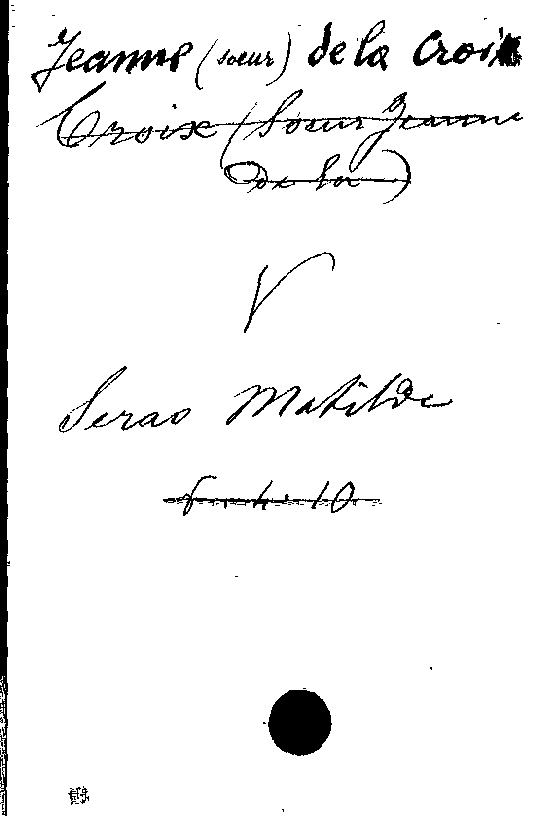 Jeanne (sœur) de la Croix
Croix (Soeur Jeanne
de la)
V
Serao Matilde
6.4.10